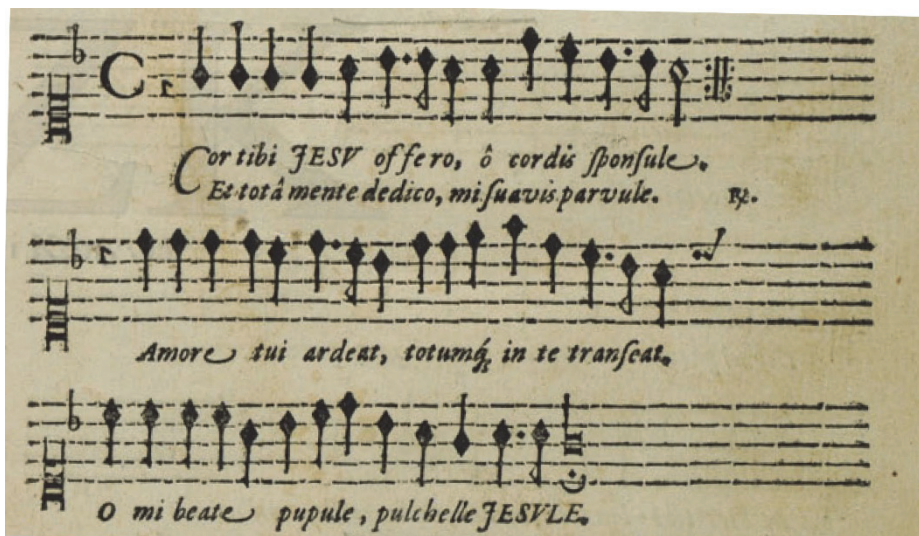 Cor tibi JESV offero, ô cordis ſponſule.
Et totâ mente dedico, mi ſuavis parvule. ℟.
Amore tui ardeat, totumq́ꝫ in te tranſeat.
O mi beate pupule, pulchelle JESVLE.